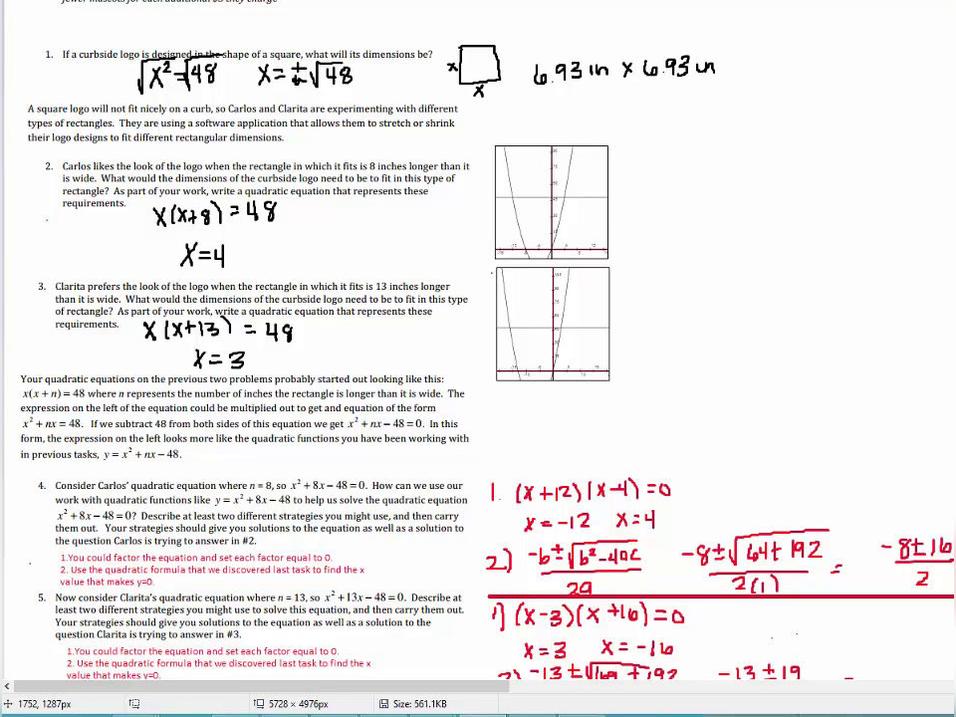 fewer mascots for each additional $5 they charge
1. If a curbside logo is designed in the shape of a square, what will its dimensions be?
√x² = √48 x = ±√48
x
x
6.93 in x 6.93 in
A square logo will not fit nicely on a curb, so Carlos and Clarita are experimenting with different
types of rectangles. They are using a software application that allows them to stretch or shrink
their logo designs to fit different rectangular dimensions.
2. Carlos likes the look of the logo when the rectangle in which it fits is 8 inches longer than it
is wide. What would the dimensions of the curbside logo need to be to fit in this type of
rectangle? As part of your work, write a quadratic equation that represents these
requirements.
x(x+8) = 48
x=4
3. Clarita prefers the look of the logo when the rectangle in which it fits is 13 inches longer
than it is wide. What would the dimensions of the curbside logo need to be to fit in this type
of rectangle? As part of your work, write a quadratic equation that represents these
requirements.
x(x+13) = 48
x=3
Your quadratic equations on the previous two problems probably started out looking like this:
x(x + n) = 48 where n represents the number of inches the rectangle is longer than it is wide. The
expression on the left of the equation could be multiplied out to get and equation of the form
x² + nx = 48. If we subtract 48 from both sides of this equation we get x² + nx − 48 = 0. In this
form, the expression on the left looks more like the quadratic functions you have been working with
in previous tasks, y = x² + nx − 48.
4. Consider Carlos' quadratic equation where n = 8, so x² + 8x − 48 = 0. How can we use our
work with quadratic functions like y = x² + 8x − 48 to help us solve the quadratic equation
x² + 8x − 48 = 0? Describe at least two different strategies you might use, and then carry
them out. Your strategies should give you solutions to the equation as well as a solution to
the question Carlos is trying to answer in #2.
1.You could factor the equation and set each factor equal to 0.
2. Use the quadratic formula that we discovered last task to find the x
value that makes y=0.
1. (x+12)(x-4)=0
x=-12 x=4
2) -b±√b²-4ac / 2a -8±√64+192 / 2(1) = -8±16 / 2
5. Now consider Clarita's quadratic equation where n = 13, so x² + 13x − 48 = 0. Describe at
least two different strategies you might use to solve this equation, and then carry them out.
Your strategies should give you solutions to the equation as well as a solution to the
question Clarita is trying to answer in #3.
1.You could factor the equation and set each factor equal to 0.
2. Use the quadratic formula that we discovered last task to find the x
value that makes y=0.
1) (x-3)(x+16)=0
x=3 x=-16
2) -13±√169+192 -13±19 =
1752, 1287px
5728 × 4976px
Size: 561.1KB